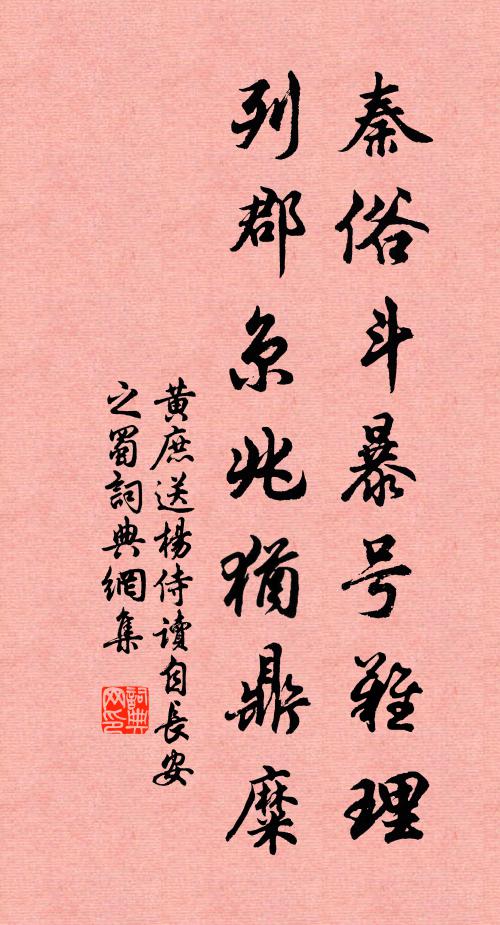 秦俗斗暴号难理
列郡京兆猶鼎糜
黄庶送楊侍讀自長安
之蜀詞典網集
詞典网印